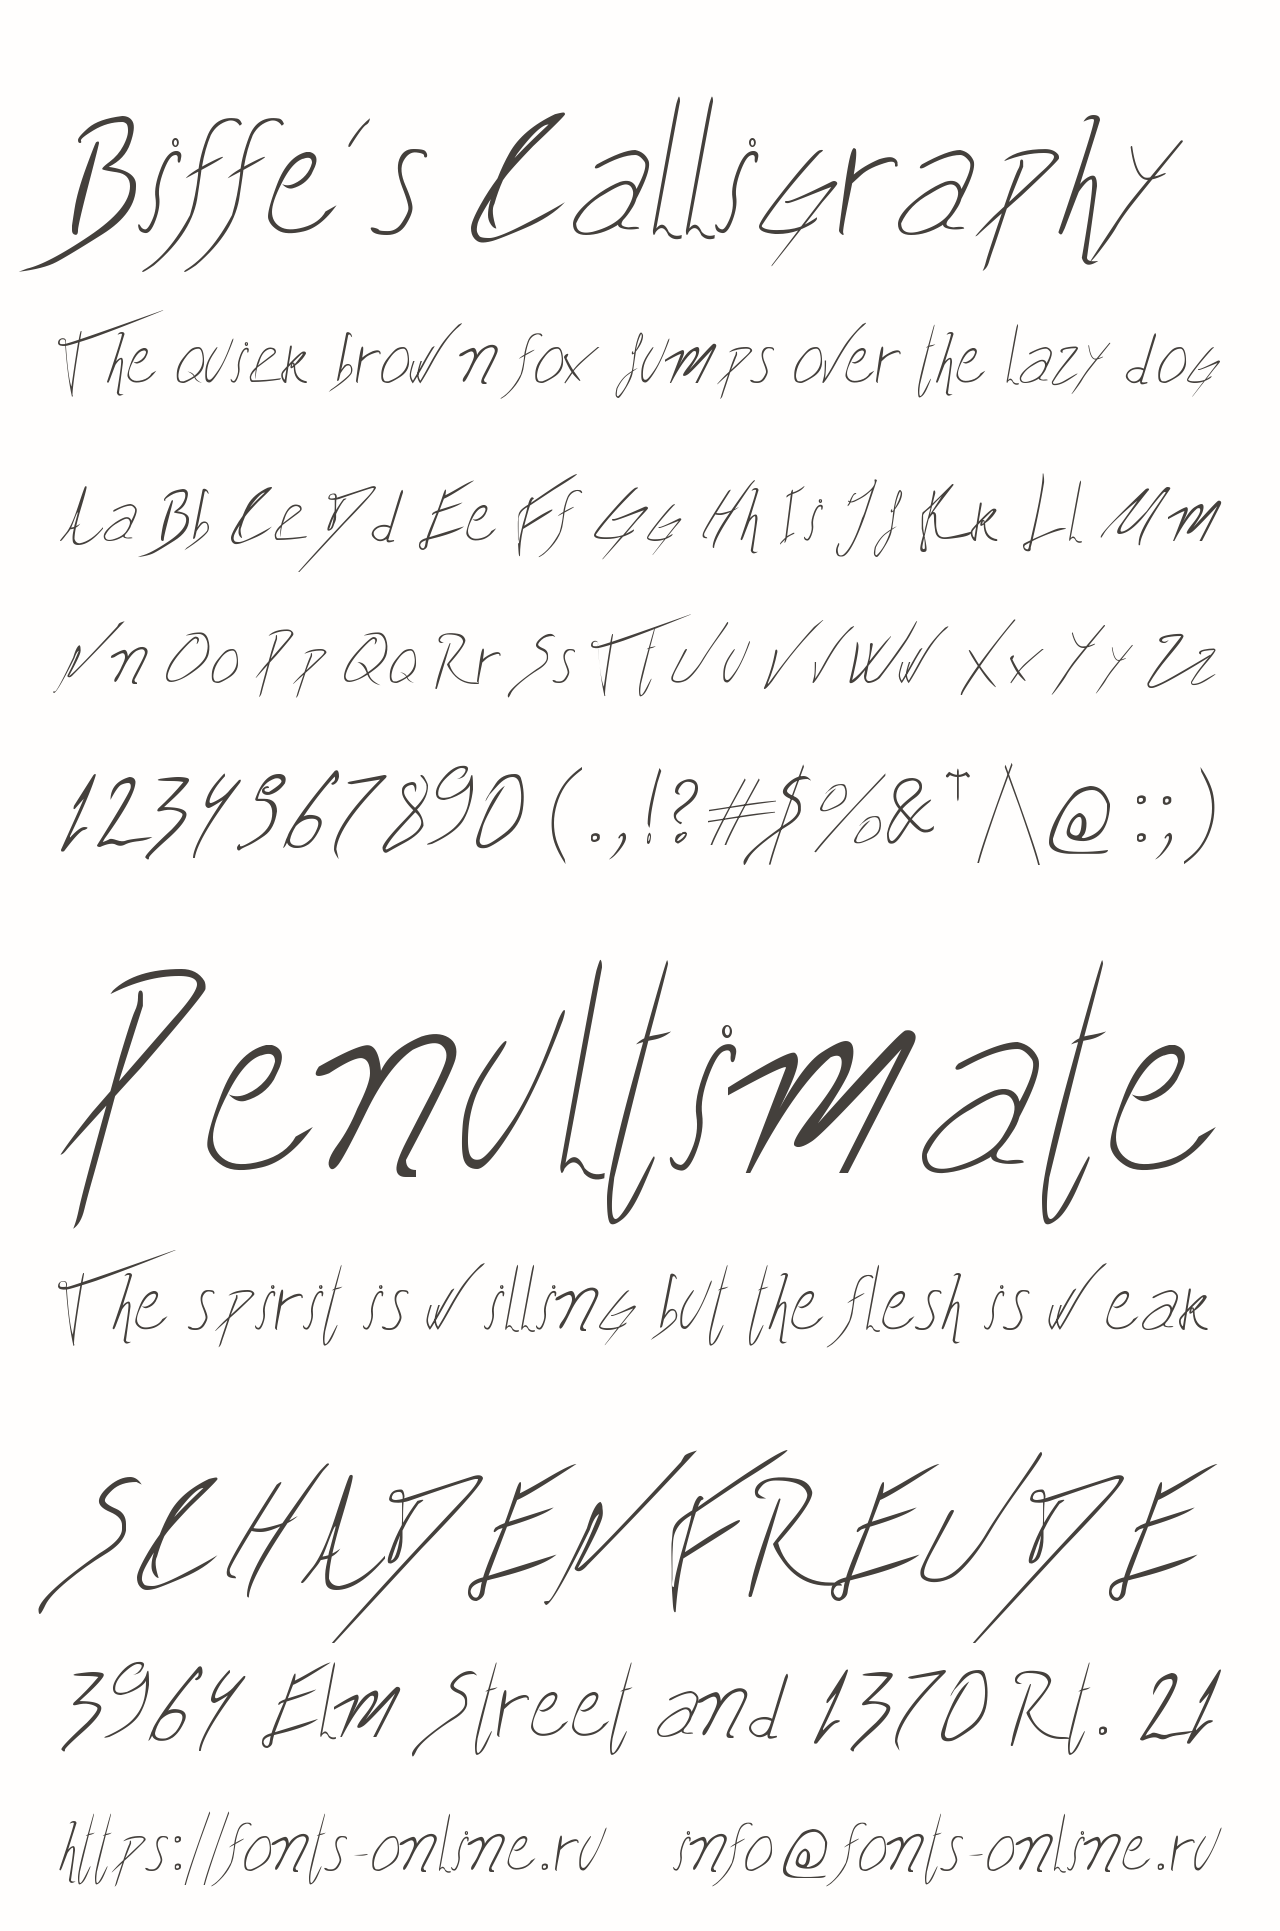 Biffe's Calligraphy
The quick brown fox jumps over the lazy dog
Aa Bb Cc Dd Ee Ff Gg Hh Ii Jj Kk Ll Mm
Nn Oo Pp Qq Rr Ss Tt Uu Vv Ww Xx Yy Zz
1234567890(.,!?#$%&†/\@:;)
Penultimate
The spirit is willing but the flesh is weak
SCHADENFREUDE
3964 Elm Street and 1370 Rt. 21
https://fonts-online.ru info@fonts-online.ru